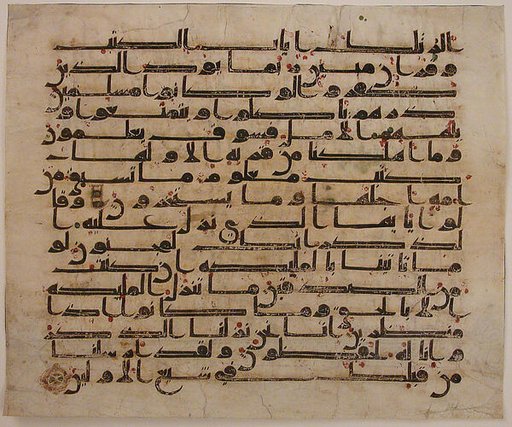 الر تلك ايت الكتب
وقران مبين ربما يود الذين
كفروا لو كانوا مسلمين
ذرهم ياكلوا ويتمتعوا و
يلههم الامل فسوف يعلمون
وما اهلكنا من قرية الا ولها
كتب معلوم ما تسبق من
امة اجلها وما يستخرون وقا
لوا يايها الذي نزل عليه ا
لذكر انك لمجنون لو
ما تاتينا بالمليكة ان كنت
من الصدقين ما ننزل المليكة
الا بالحق وما كانوا اذا
منظرين انا نحن نزلنا الذكر
وانا له لحفظون ولقد ارسلنا
من قبلك في شيع الاولين